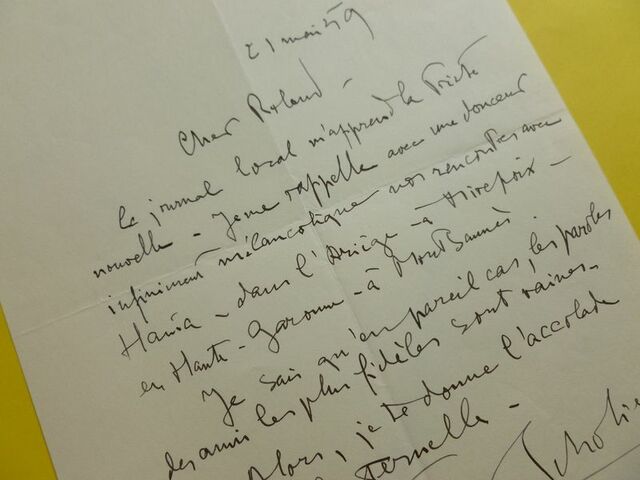 21 mai 59
Cher Roland -
Le journal local m'apprend la triste
nouvelle - Je me rappelle avec une douceur
infiniment mélancolique nos rencontres avec
Hania - dans l'Ariège - à Mirepoix -
en Haute-Garonne - à Montsaunès.
Je sais qu'en pareil cas, les paroles
des amis les plus fidèles sont vaines -
Alors, je te donne l'accolade